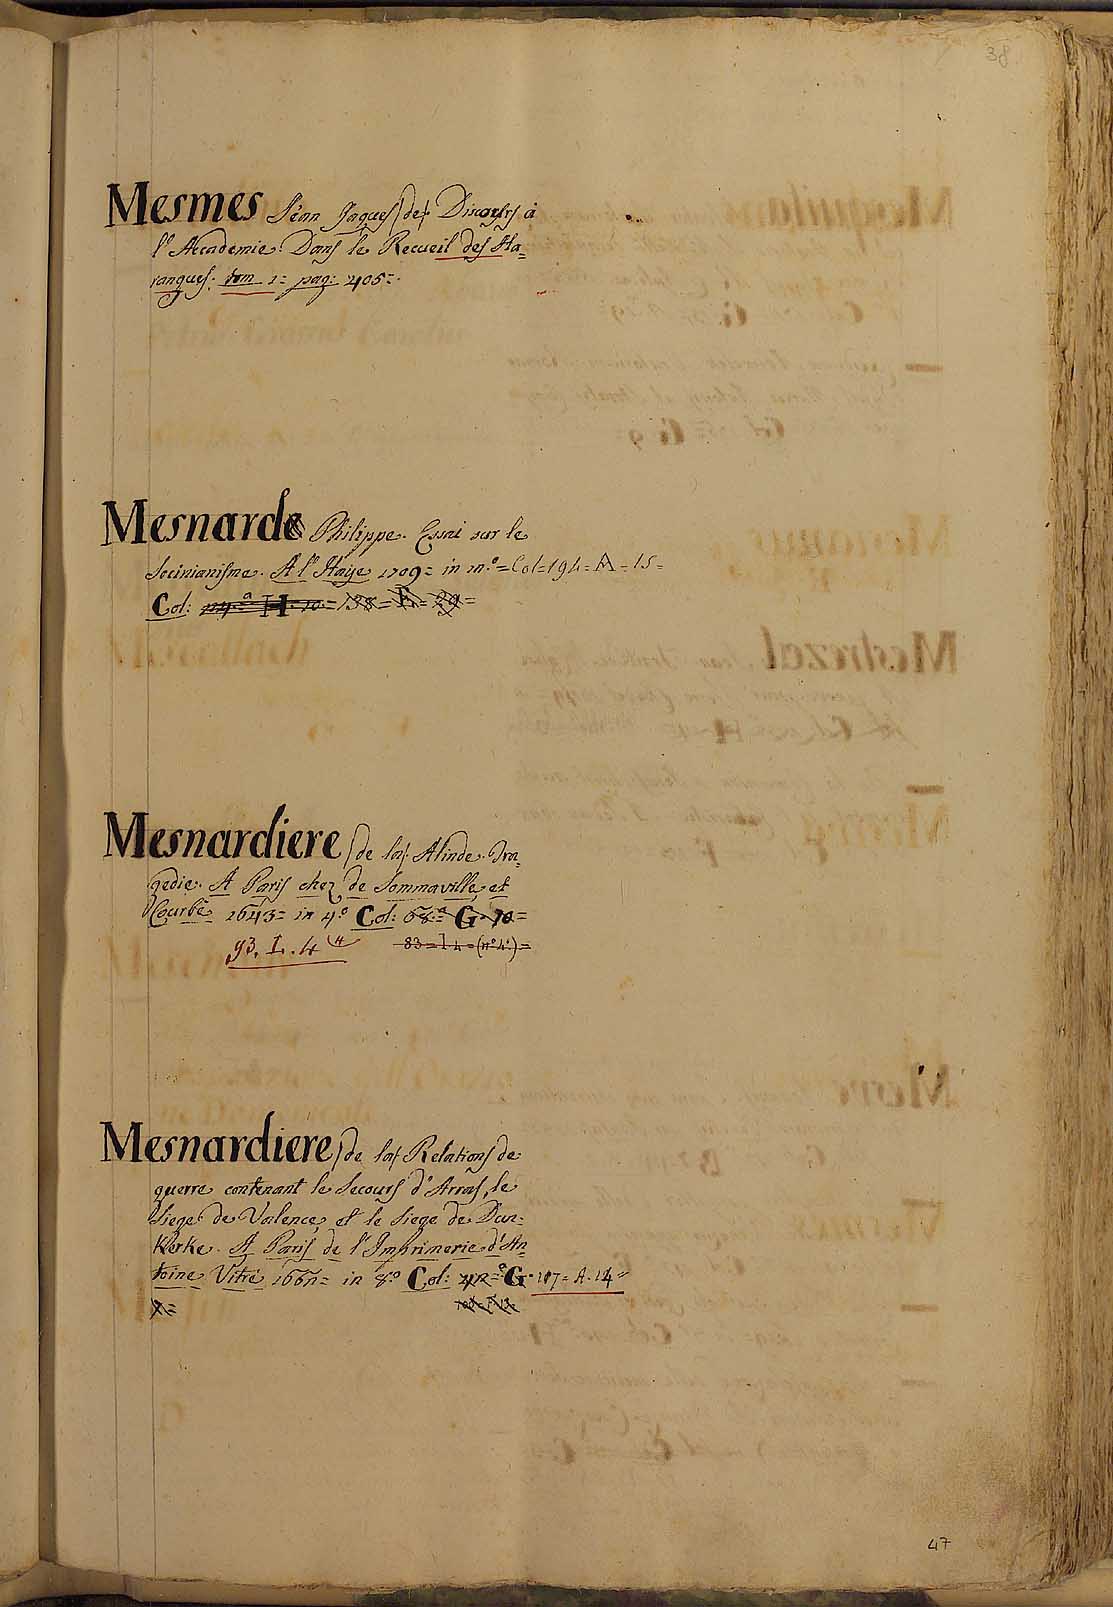 38
Mesmes Jean Jaques (de) Discours à
l'Academie. Dans le Recueil des Ha=
rangues. tom. 1= pag: 405=.
Mesnarde Philippe. Essai sur le
Socinianisme. A l'Haye 1709= in 12.º= Col=194=A=15=
Col: H. 10.= 138= =29=
Mesnardiere (de la) Alinde. Tra=
gedie. A Paris chez de Sommaville, et
Courbè 1643= in 4º Col: 68.=ª G. 10=
93. I. 4 83=I 4=(nº4º.)=
Mesnardiere (de la) Relations de
guerre contenant le Secours d'Arras, le
Siege de Valence, et le Siege de Dun=
Kerke. A Paris de l'Imprimerie d'An=
toine Vitrè 1662= in 8.º Col: 42=ª G. 117=A.14
47